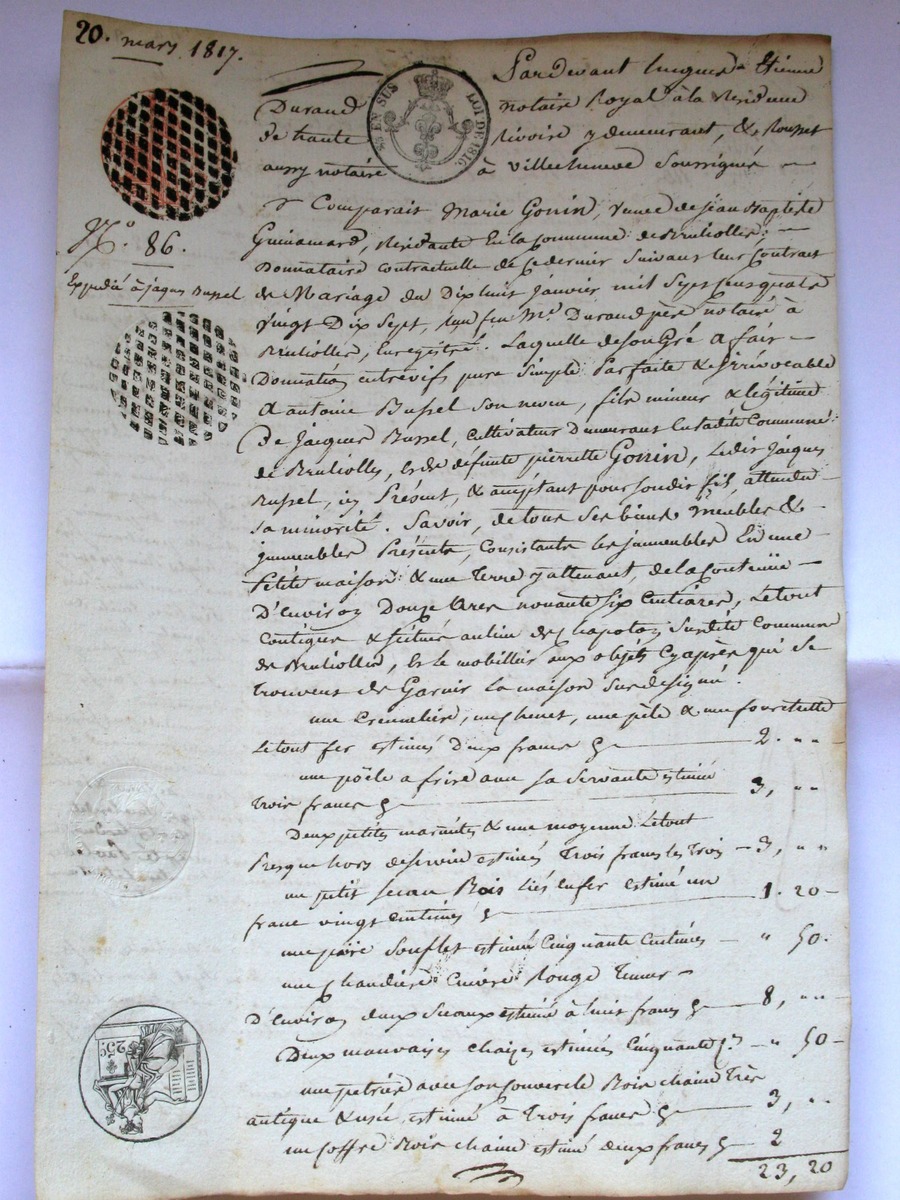 20. mars 1817.
Pardevant lucques Etienne
Durand notaire Royal à la Residence
de haute Rivoire y demeurant, & Rousset
aussy notaire à Villecheneve Soussignés
EN SUS LOI DE 1816.
N.º 86.
Expédié à jaques Bussel
Comparait Marie Gonin, veuve de jean Baptiste
Guinamard, Residante En la Commune de Brulliolles,
Donnataire contractuelle de Ce dernier Suivant leur Contrat
de Mariage du Dix huit janvier mil Sept cens quatre
vingt Dix Sept, reçu feu Me. Durand père notaire à
Brulliolles, Enregistré. Laquelle de Son Gré a fait
Donnation entrevifs pure Simple Parfaite & irrévocable
A antoine Bussel Son neveu, fils mineur & légitime
De jacques Bussel, Cultivateur Demeurant En la dite Commune
de Brulliolles, & de défunte pierrette Gonin, Ledit jacques
Bussel, icy Présent, & acceptant pour Son dit fils, attendu
Sa minorité. Savoir, de tous Ses biens Meubles &
jmmeubles Présents, Consistants les jmmeubles En une
Petite maison & une Terre y attenant, de la Contenüe
D'Environ Douze Ares nonante Six Centiares, Le tout
Contigue & Scitué au lieu de Chapoton Susdite Commune
de Brulliolles, & le mobillier aux objets Cy après qui Se
trouvent de Garnir La maison Sus désignée.
une Cremalière, un chenet, une pèle & une fourchette
Le tout fer estimés Deux francs 2. " "
une poële a frire avec Sa Servante estimée
Trois francs 3, " "
Deux petites marmites & une moyenne Le tout
Presque hors de Service estimés Trois francs les Trois 3, " "
un petit Seau Bois liés en fer estimé un
franc vingt Centimes 1. 20
une paire Souflet estimée Cinquante Centimes " 50.
une Chaudière Cuivre Rouge Tenant
D'Environ deux Seaux estimée à huit francs 8, " "
Deux mauvaises chaizes estimées Cinquante Cmes " 50
une petrière avec Son Couvercle Bois chaine Très
antique & usée, estimée à Trois francs 3, " "
un Coffre Bois chaine estimé deux francs 2
23, 20
25c